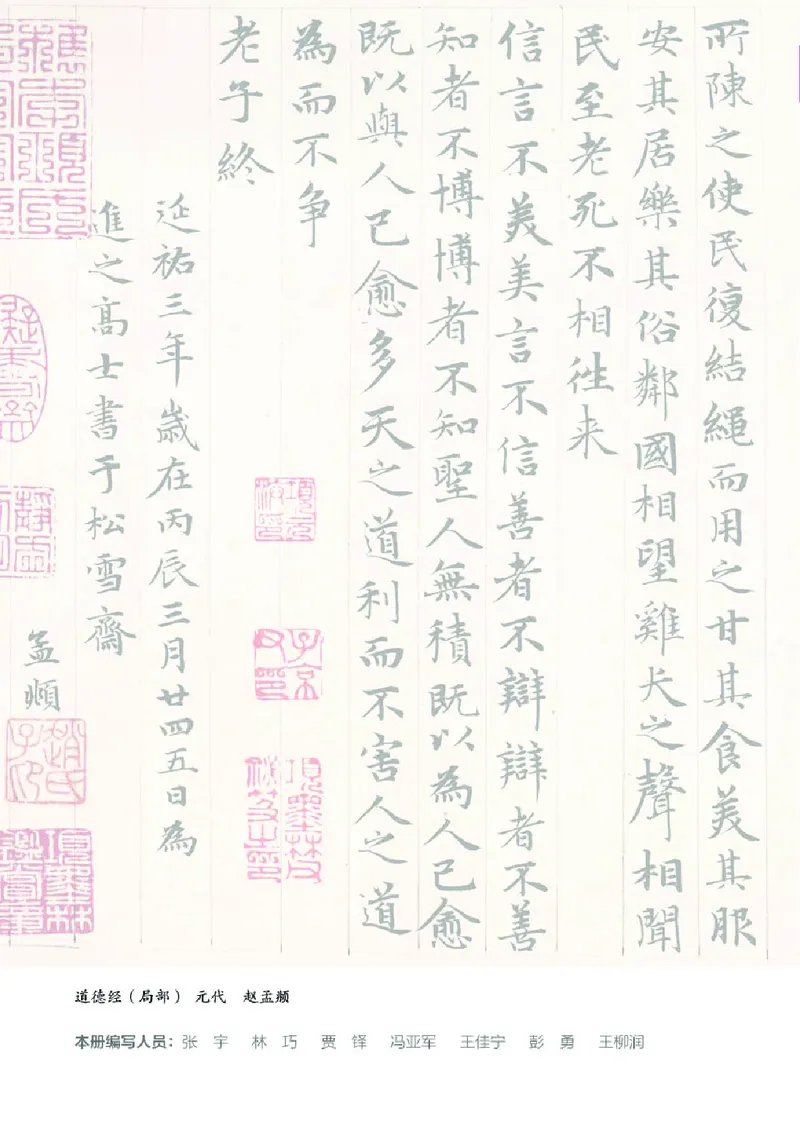 所陳之使民復結繩而用之甘其食美其服
安其居樂其俗鄰國相望雞犬之聲相聞
民至老死不相徃来
信言不美美言不信善者不辯辯者不善
知者不博博者不知聖人無積既以為人己愈
既以與人己愈多天之道利而不害人之道
為而不争
老子終
延祐三年歲在丙辰三月廿四五日為
進之高士書于松雪齋
孟頫
項元汴印
子京父印
項墨林父祕笈之印
趙氏子昂
項墨林鑑賞章
道德经（局部） 元代 赵孟頫
本册编写人员：张 宇 林 巧 贾 铎 冯亚军 王佳宁 彭 勇 王柳润